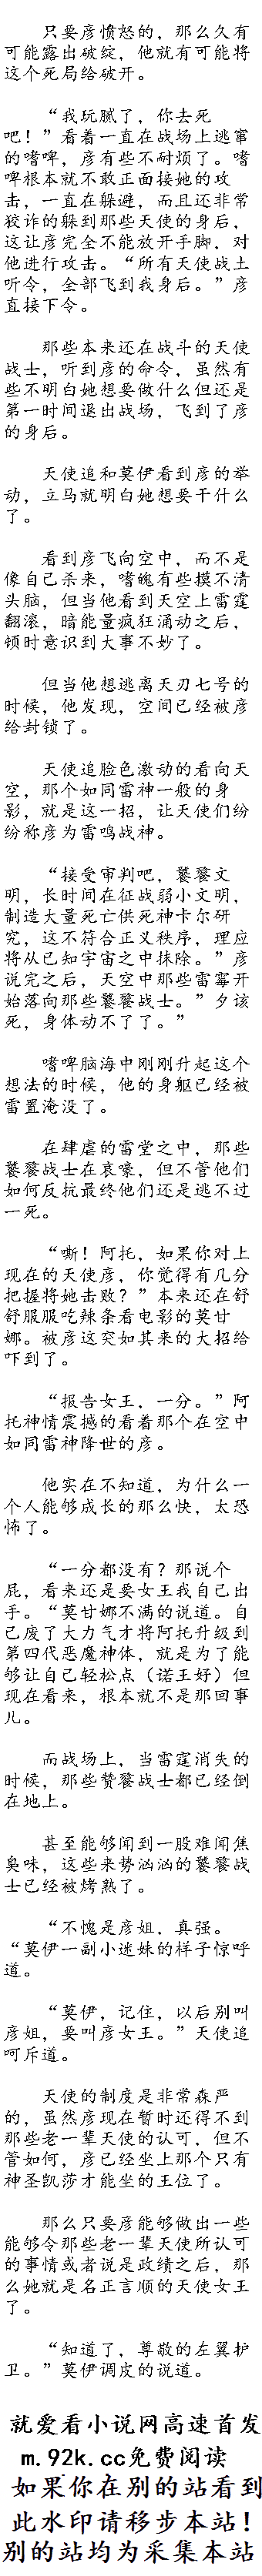 只要彦愤怒的，那么久有
可能露出破绽，他就有可能将
这个死局给破开。
“我玩腻了，你去死
吧！”看着一直在战场上逃窜
的嗜啤，彦有些不耐烦了。嗜
啤根本就不敢正面接她的攻
击，一直在躲避，而且还非常
狡诈的躲到那些天使的身后，
这让彦完全不能放开手脚，对
他进行攻击。“所有天使战土
听令，全部飞到我身后。”彦
直接下令。
那些本来还在战斗的天使
战士，听到彦的命令，虽然有
些不明白她想要做什么但还是
第一时间退出战场，飞到了彦
的身后。
天使追和莫伊看到彦的举
动，立马就明白她想要干什么
了。
看到彦飞向空中，而不是
像自己杀来，嗜魄有些摸不清
头脑，但当他看到天空上雷霆
翻滚，暗能量疯狂涌动之后，
顿时意识到大事不妙了。
但当他想逃离天刃七号的
时候，他发现，空间已经被彦
给封锁了。
天使追脸色激动的看向天
空，那个如同雷神一般的身
影，就是这一招，让天使们纷
纷称彦为雷鸣战神。
“接受审判吧，饕餮文
明，长时间在征战弱小文明，
制造大量死亡供死神卡尔研
究，这不符合正义秩序，理应
将从已知宇宙之中抹除。”彦
说完之后，天空中那些雷霉开
始落向那些饕餮战士。”夕该
死，身体动不了了。”
嗜啤脑海中刚刚升起这个
想法的时候，他的身躯已经被
雷置淹没了。
在肆虐的雷堂之中，那些
饕餮战士在哀嚎，但不管他们
如何反抗最终他们还是逃不过
一死。
“嘶！阿托，如果你对上
现在的天使彦，你觉得有几分
把握将她击败？”本来还在舒
舒服服吃辣条看电影的莫甘
娜。被彦这突如其来的大招给
吓到了。
“报告女王，一分。”阿
托神情震撼的看着那个在空中
如同雷神降世的彦。
他实在不知道，为什么一
个人能够成长的那么快，太恐
怖了。
“一分都没有？那说个
屁，看来还是要女王我自己出
手。“莫甘娜不满的说道。自
己废了大力气才将阿托升级到
第四代恶魔神体，就是为了能
够让自己轻松点（诺王好）但
现在看来，根本就不是那回事
儿。
而战场上，当雷霆消失的
时候，那些赞餮战士都已经倒
在地上。
甚至能够闻到一股难闻焦
臭味，这些来势汹汹的饕餮战
士已经被烤熟了。
“不愧是彦姐，真强。
“莫伊一副小迷妹的样子惊呼
道。
“莫伊，记住，以后别叫
彦姐，要叫彦女王。”天使追
呵斥道。
天使的制度是非常森严
的，虽然彦现在暂时还得不到
那些老一辈天使的认可，但不
管如何，彦已经坐上那个只有
神圣凯莎才能坐的王位了。
那么只要彦能够做出一些
能够令那些老一辈天使所认可
的事情或者说是政绩之后，那
么她就是名正言顺的天使女王
了。
“知道了，尊敬的左翼护
卫。”莫伊调皮的说道。
就爱看小说网高速首发
m.92k.cc免费阅读
如果你在别的站看到
此水印请移步本站！
别的站均为采集本站